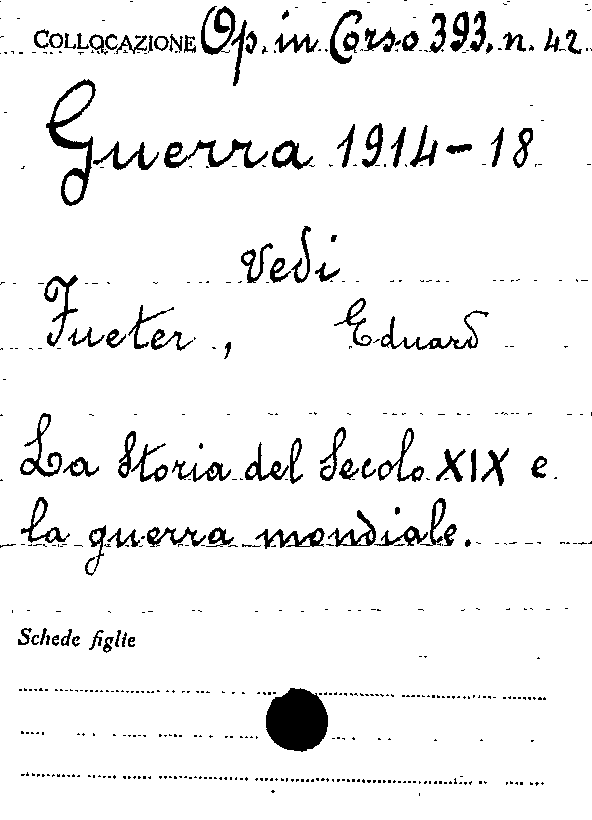 COLLOCAZIONE Op. in Corso 393. n. 42
Guerra 1914-18
Vedi
Fueter, Eduard
La Storia del Secolo XIX e
la guerra mondiale.
Schede figlie